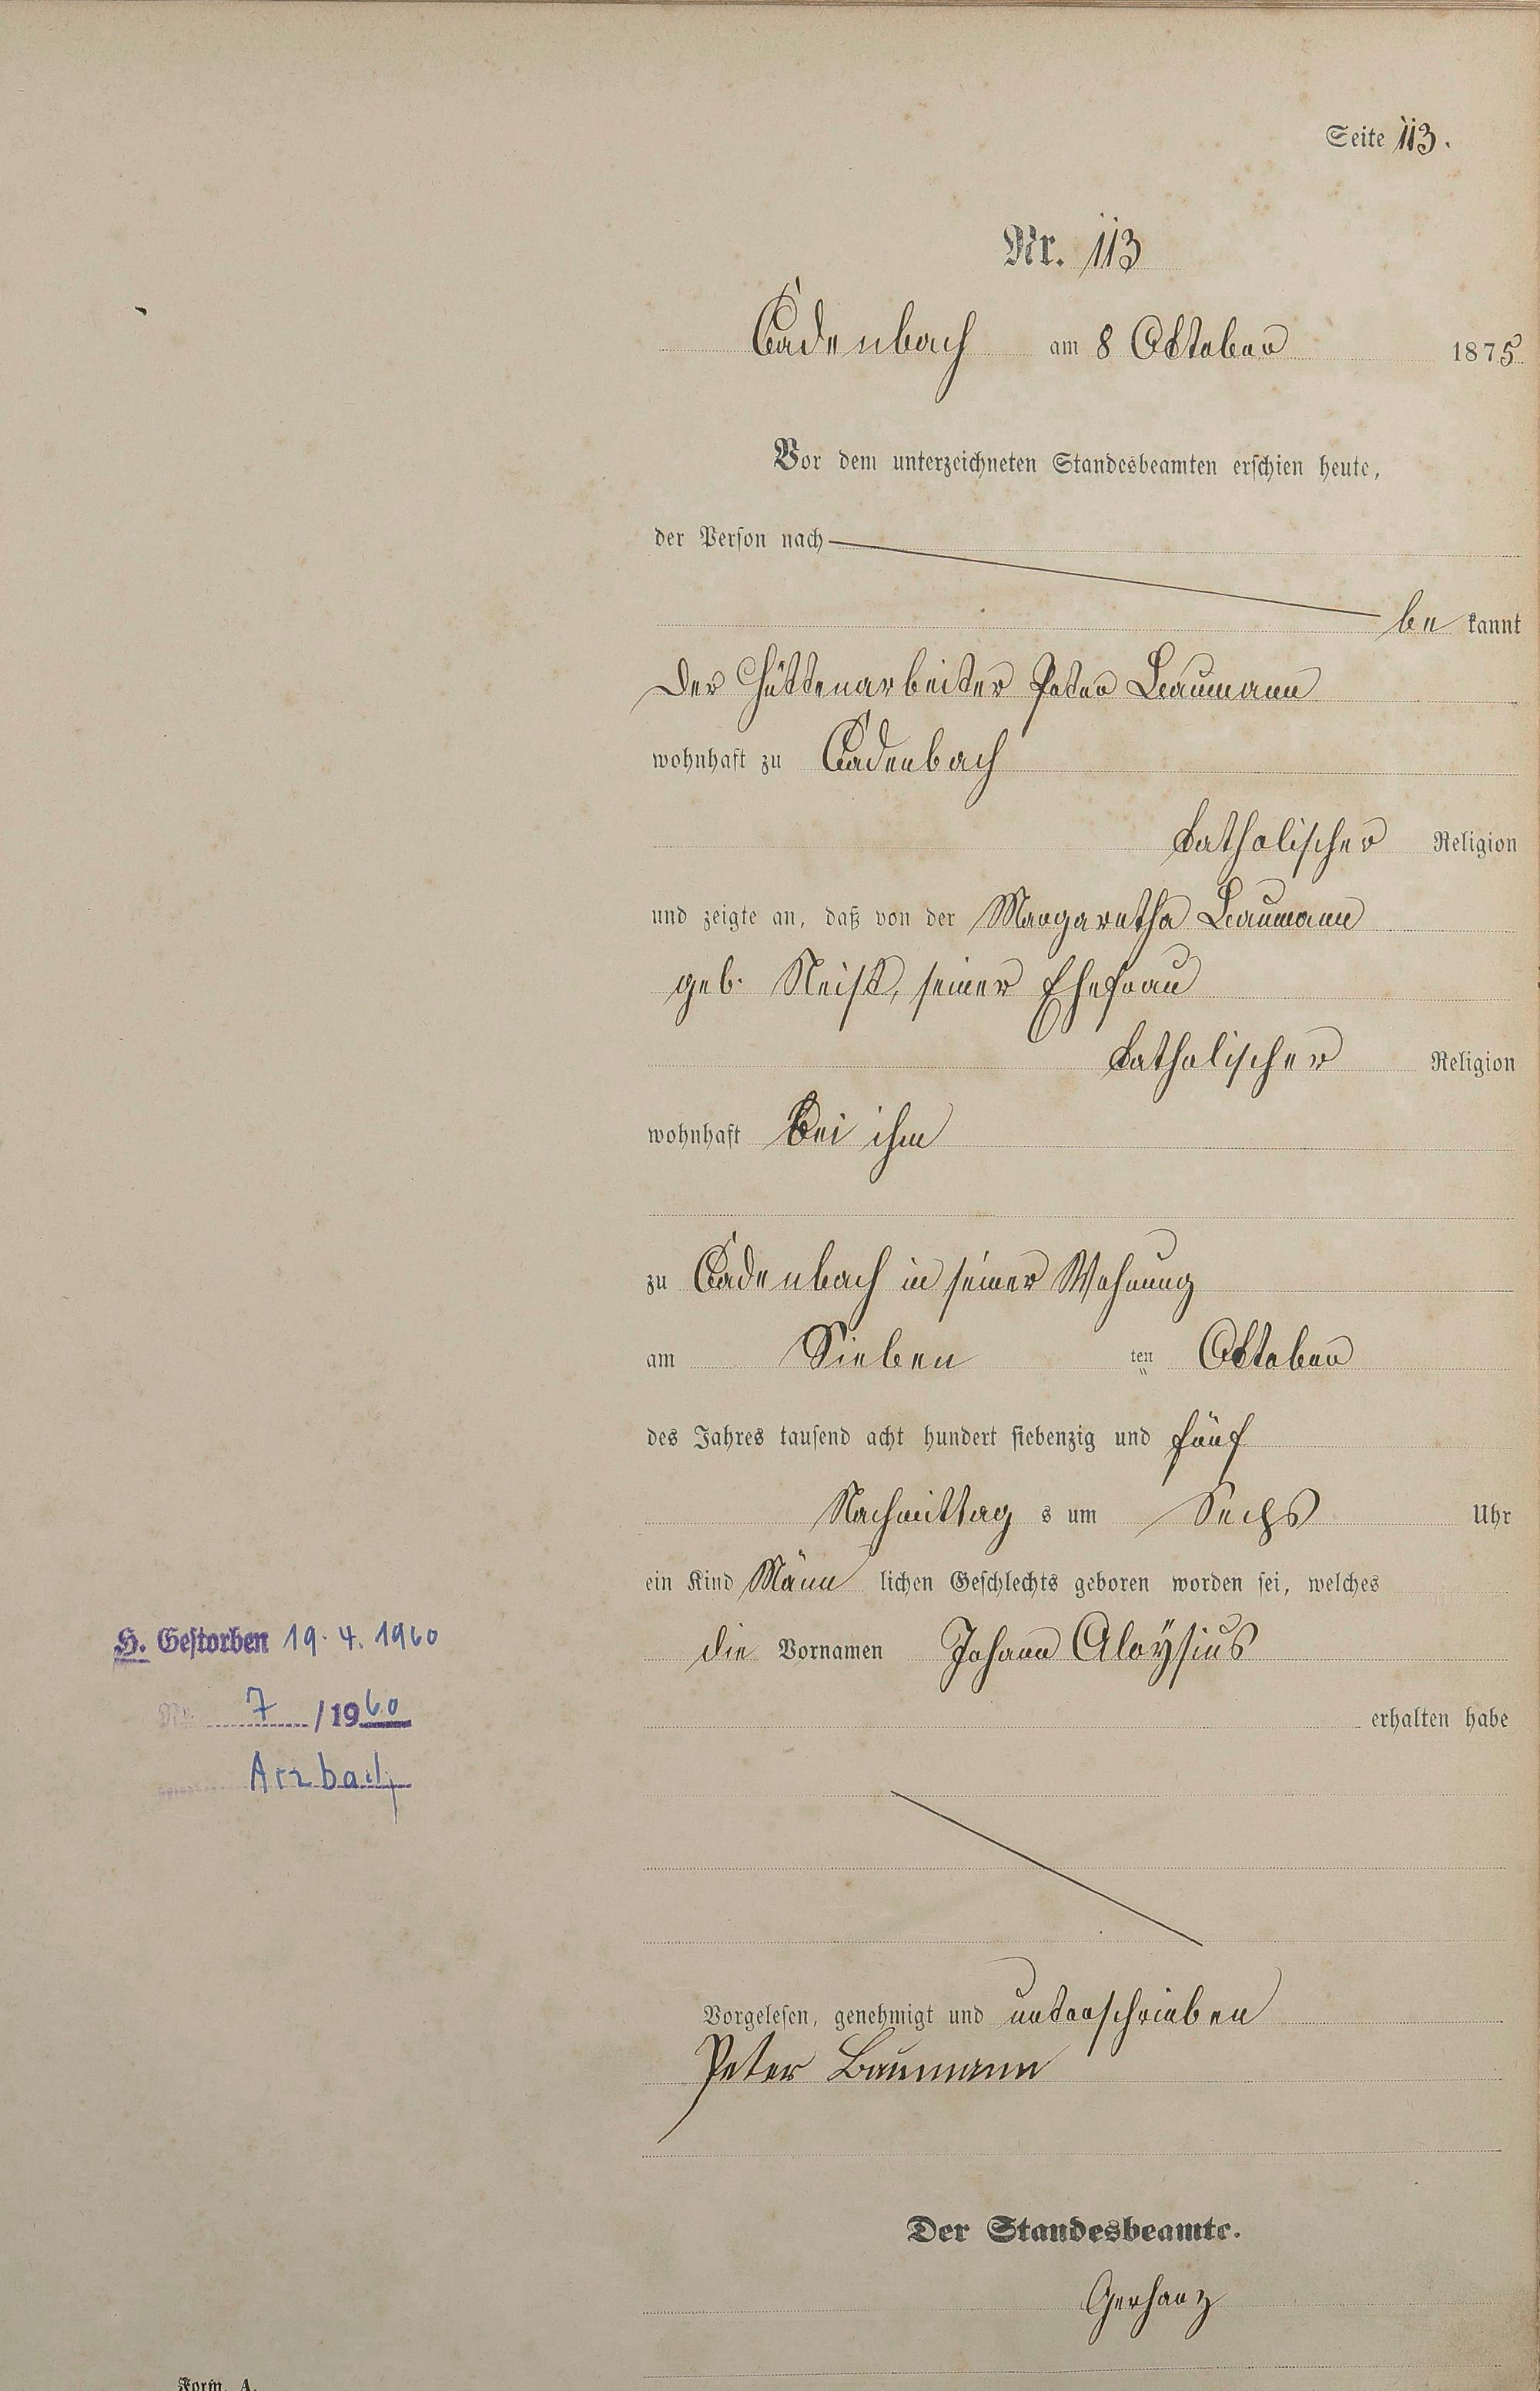 Seite 113.
Nr. 113
Cadenbach am 8 Oktober 1875
Vor dem unterzeichneten Standesbeamten erschien heute,
der Person nach
be kannt
Der Hüttenarbeiter Peter Baumann
wohnhaft zu Cadenbach
katholischer Religion
und zeigte an, daß von der Margaretha Baumann
geb. seiner Ehefrau
katholischer Religion
wohnhaft bei ihm
zu Cadenbach in seiner Wohnung
am Sieben ten Oktober
des Jahres tausend acht hundert siebenzig und fünf
Nachmittag s um Sechs Uhr
ein Kind Männ lichen Geschlechts geboren worden sei, welches
die Vornamen Johann Aloÿsius
H. Gestorben 19. 4. 1960
erhalten habe
Nr. 7 / 1960
Arzbach
Vorgelesen, genehmigt und unterschrieben
Peter Baumann
Der Standesbeamte.
Gerharz
Form. A.